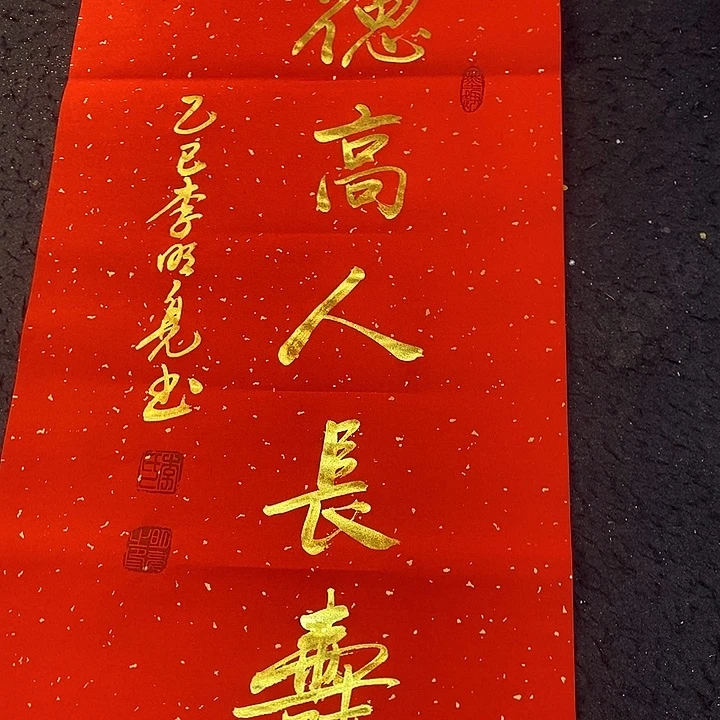 德高人長壽
乙巳李明亮书